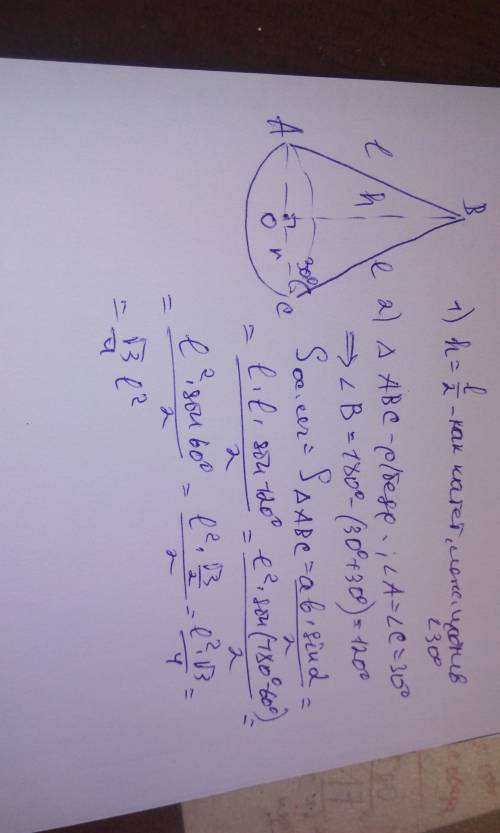 B
A
l
l
h
30°
O
r
C
1) h = l/2 - как катет, лежащ. против
∠30°
2) △ABC - р/бедр.; ∠A = ∠C = 30°
⇒ ∠B = 180° - (30° + 30°) = 120°
Sос. сеч = S△ABC = ab · sinα / 2 =
= l · l · sin 120° / 2 = l² · sin(180° - 60°) / 2 =
= l² · sin 60° / 2 = l² · √3/2 / 2 = l² · √3 / 4 =
= √3/4 l²